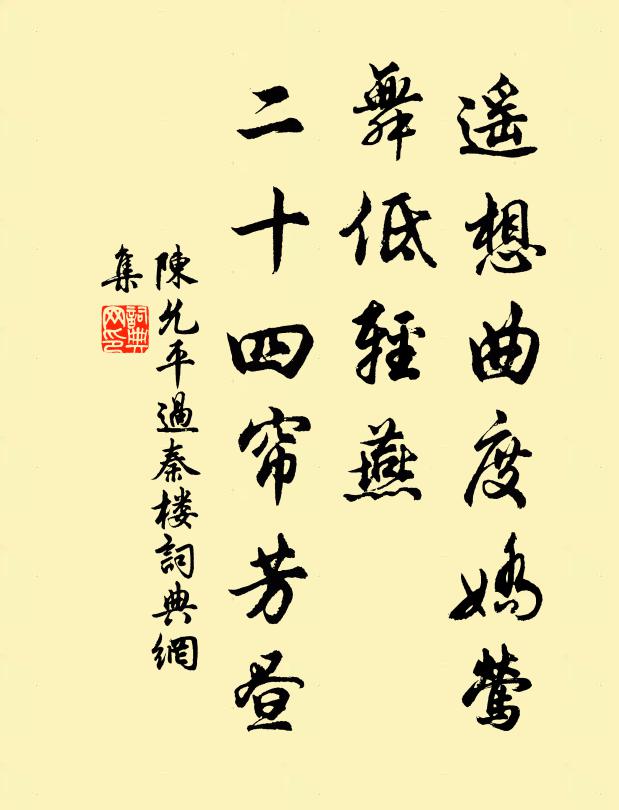 遥想曲度嬌鶯
舞低輕燕
二十四帘芳昼
陳允平過秦楼詞典網
集
詞典
网印